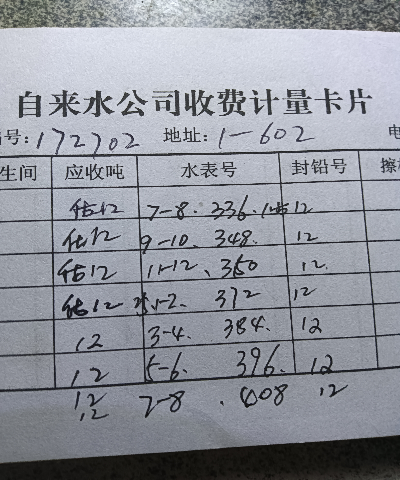 自来水公司收费计量卡片
编号: 172702 地址: 1-602 电
生间 应收吨 水表号 封铅号 擦
估12 7-8. 336. 12
估12 9-10. 348. 12
估12 11-12. 360 12.
估12 1-2. 372 12
12 3-4. 384. 12
12 5-6. 396. 12
12 7-8. 408 12
12